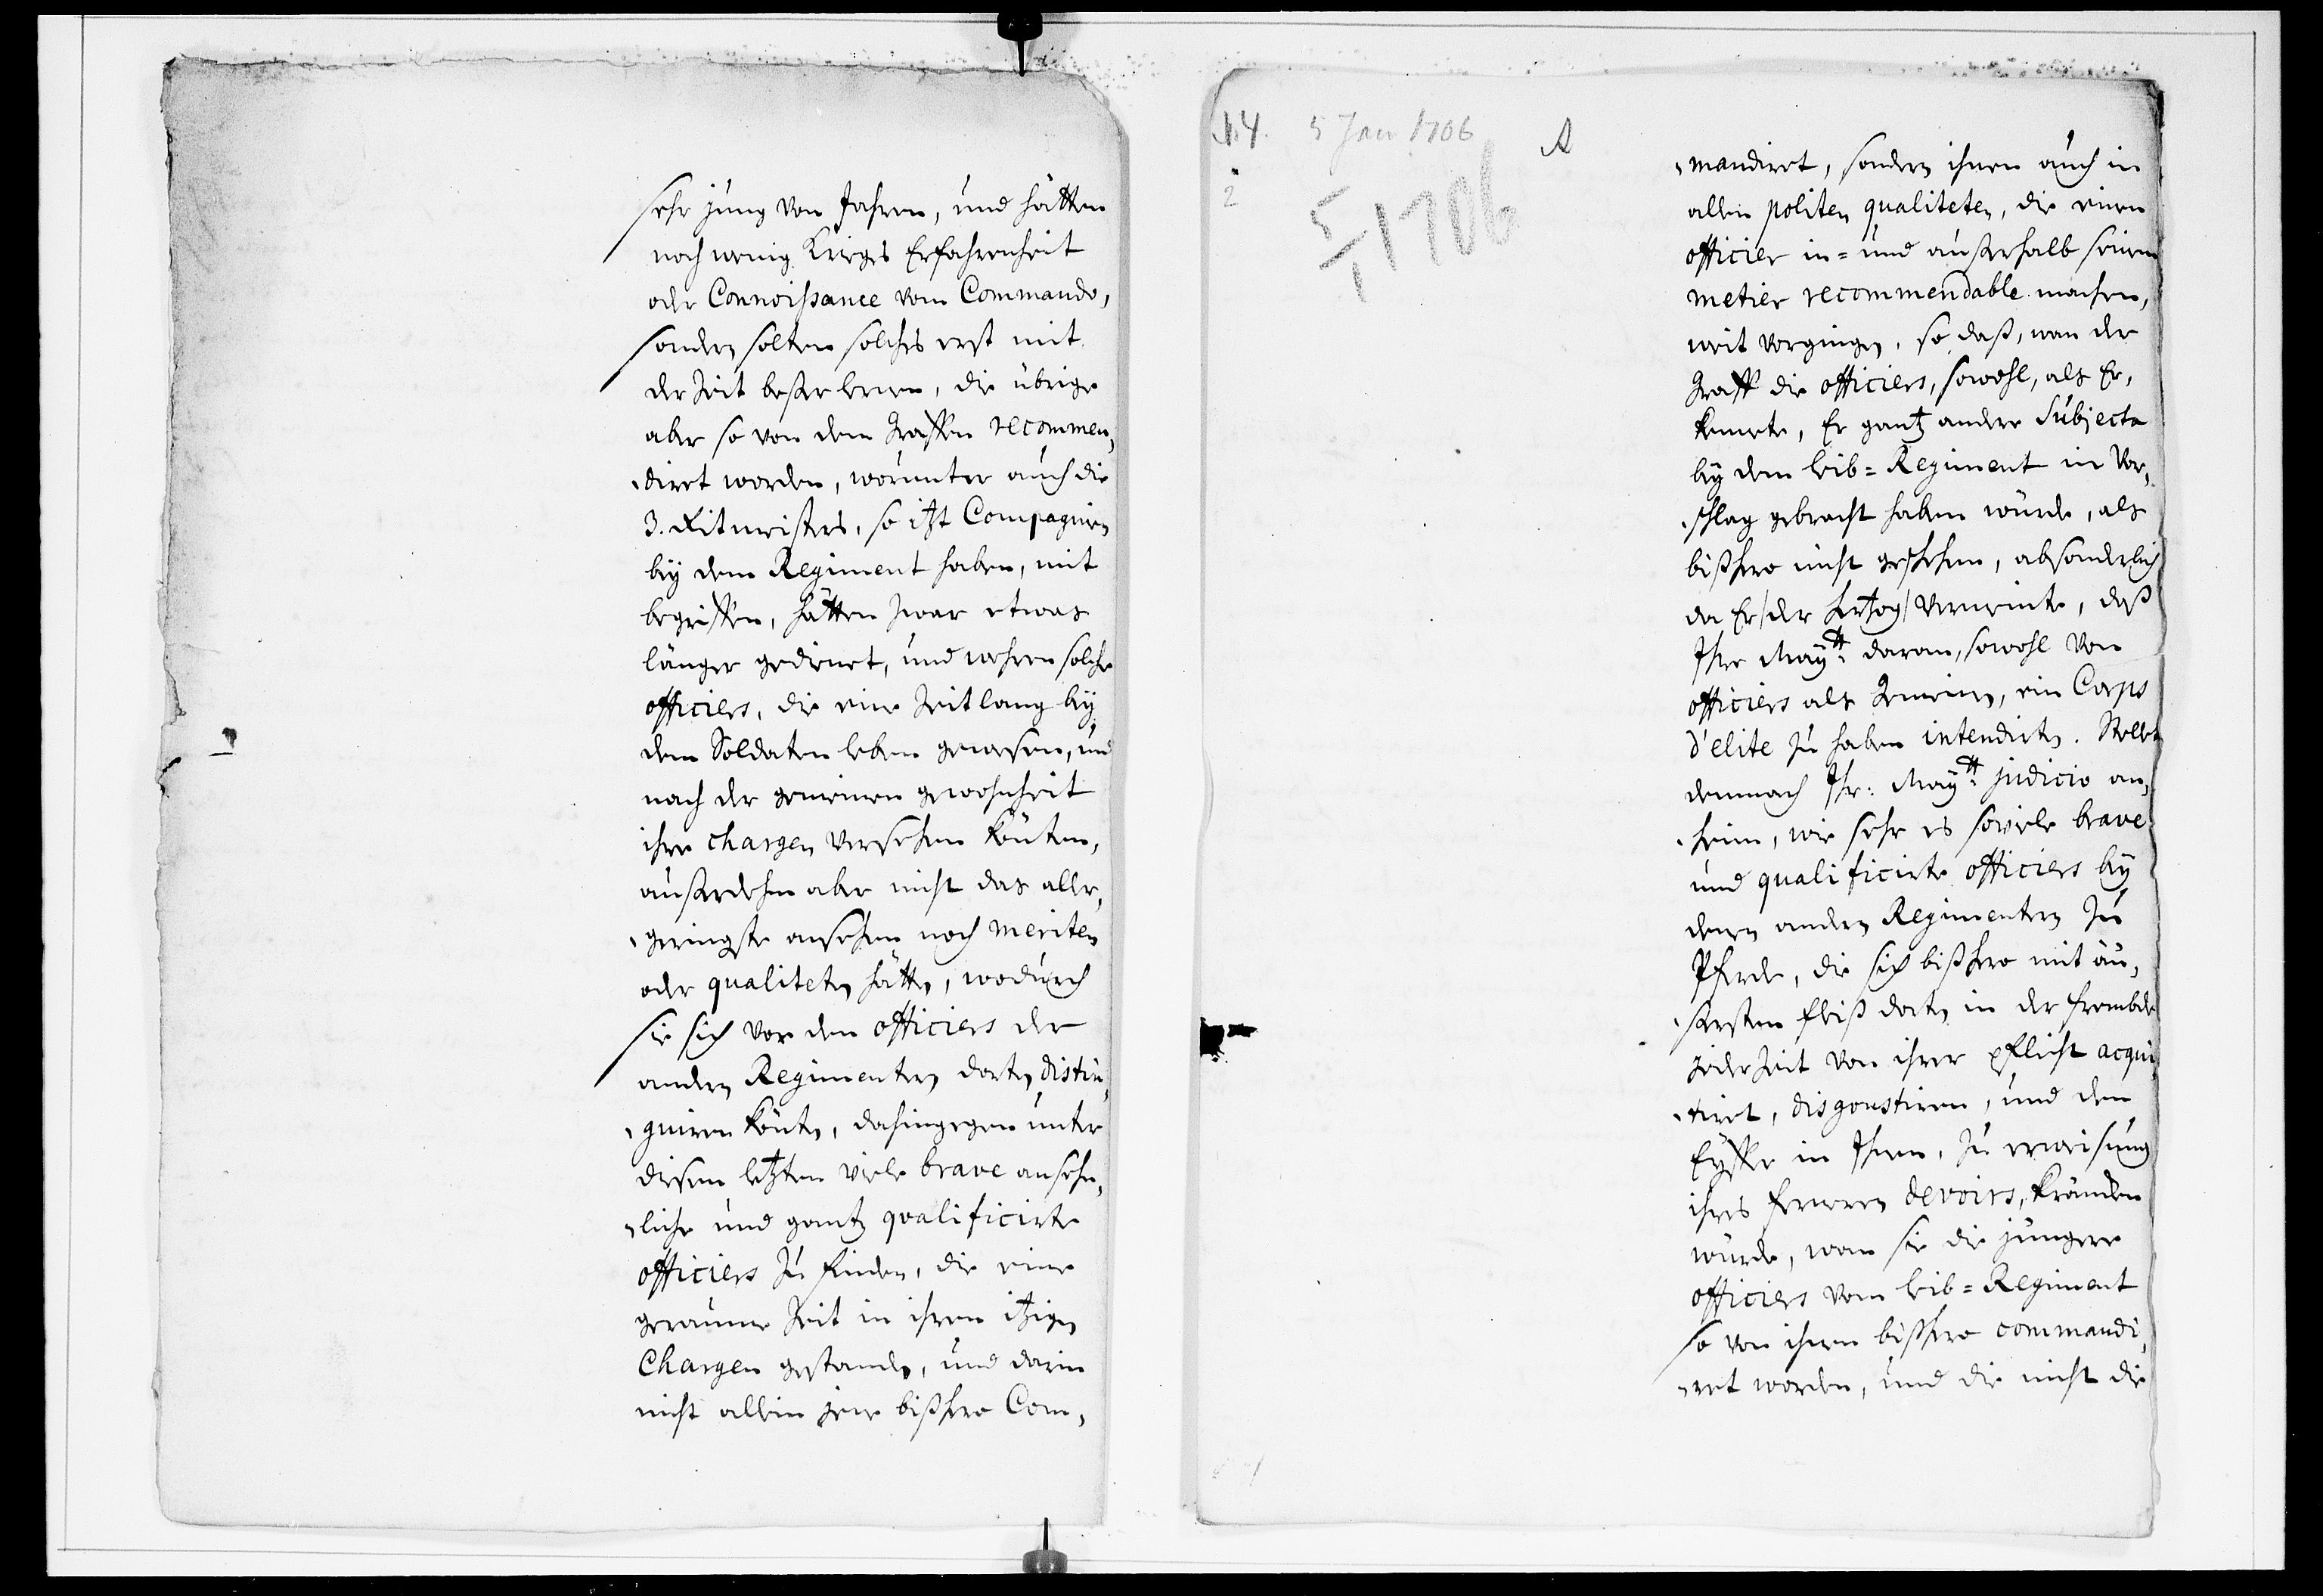 sehr jung von Jahren, und hätten
noch wenig Krieges Erfahrenheit
oder Connoissance vom Commando,
sondern solten solches erst mit
der Zeit besser lernen, die übrige
aber so von dem Graffen recommen,
dirt worden, worunter auch die
3. Ritmeisters, so itzt Compagnien
bey dem Regiment haben, mit
begriffen, hätten zwar etwas
länger gedienet, und wehren solche
officiers, die eine Zeitlang bey
dem Soldaten leben gewesen, und
nach der gemeinen gewohnheit
ihre chargen versehen könten,
außerdehm aber nicht das aller,
geringste ansehen noch meriten
oder qualiteten hätten, wodurch
sie sich vor den officiers der
andern Regimenter dorten distin,
guiren könten, dahingegen unter
diesen letzten viele brave ansehn,
liche und gantz qvalificirte
officiers zu finden, die eine
geraume Zeit in ihren itzigen
Chargen gestanden, und darin
nicht allein jene bißhero Com,
5 Jan 1706
A
2
5/1 1706
mandiret, sondern ihnen auch in
allen politen qualiteten, die einen
officier in= und außerhalb seinem
metier recommendable machen,
weit vorgingen, so daß, wan der
Graff die officiers, sowohl, als Er,
kennete, Er gantz andere Subjecta
bey dem Leib=Regiment in Vor,
schlag gebracht haben würde, als
bißhero nicht geschehen, absonderlich
da Er /der Hertzog/ vermeinte, daß
Ihre Maytt. daran, sowohl von
officiers als Gemeinen, ein Corps
d'elite zu haben intendirten. Stellet
demnach Ihr: Maytt. judicio an,
heim, wie sehr es soviele brave
und qualificirte officiers bey
denen andern Regimentern zu
Pferde, die sich bißhero mit äu,
sersten fleiß dorten in der frembde
jederzeit von ihrer pflicht acqui,
tiret, disgoustiren, und den
Eyffer in Ihnen, zu erweisung
ihres fernern devoirs, kräncken
würde, wan sie die jüngere
officiers vom Leib=Regiment
so von ihnen bißhero commandi,
ret worden, und die nicht die